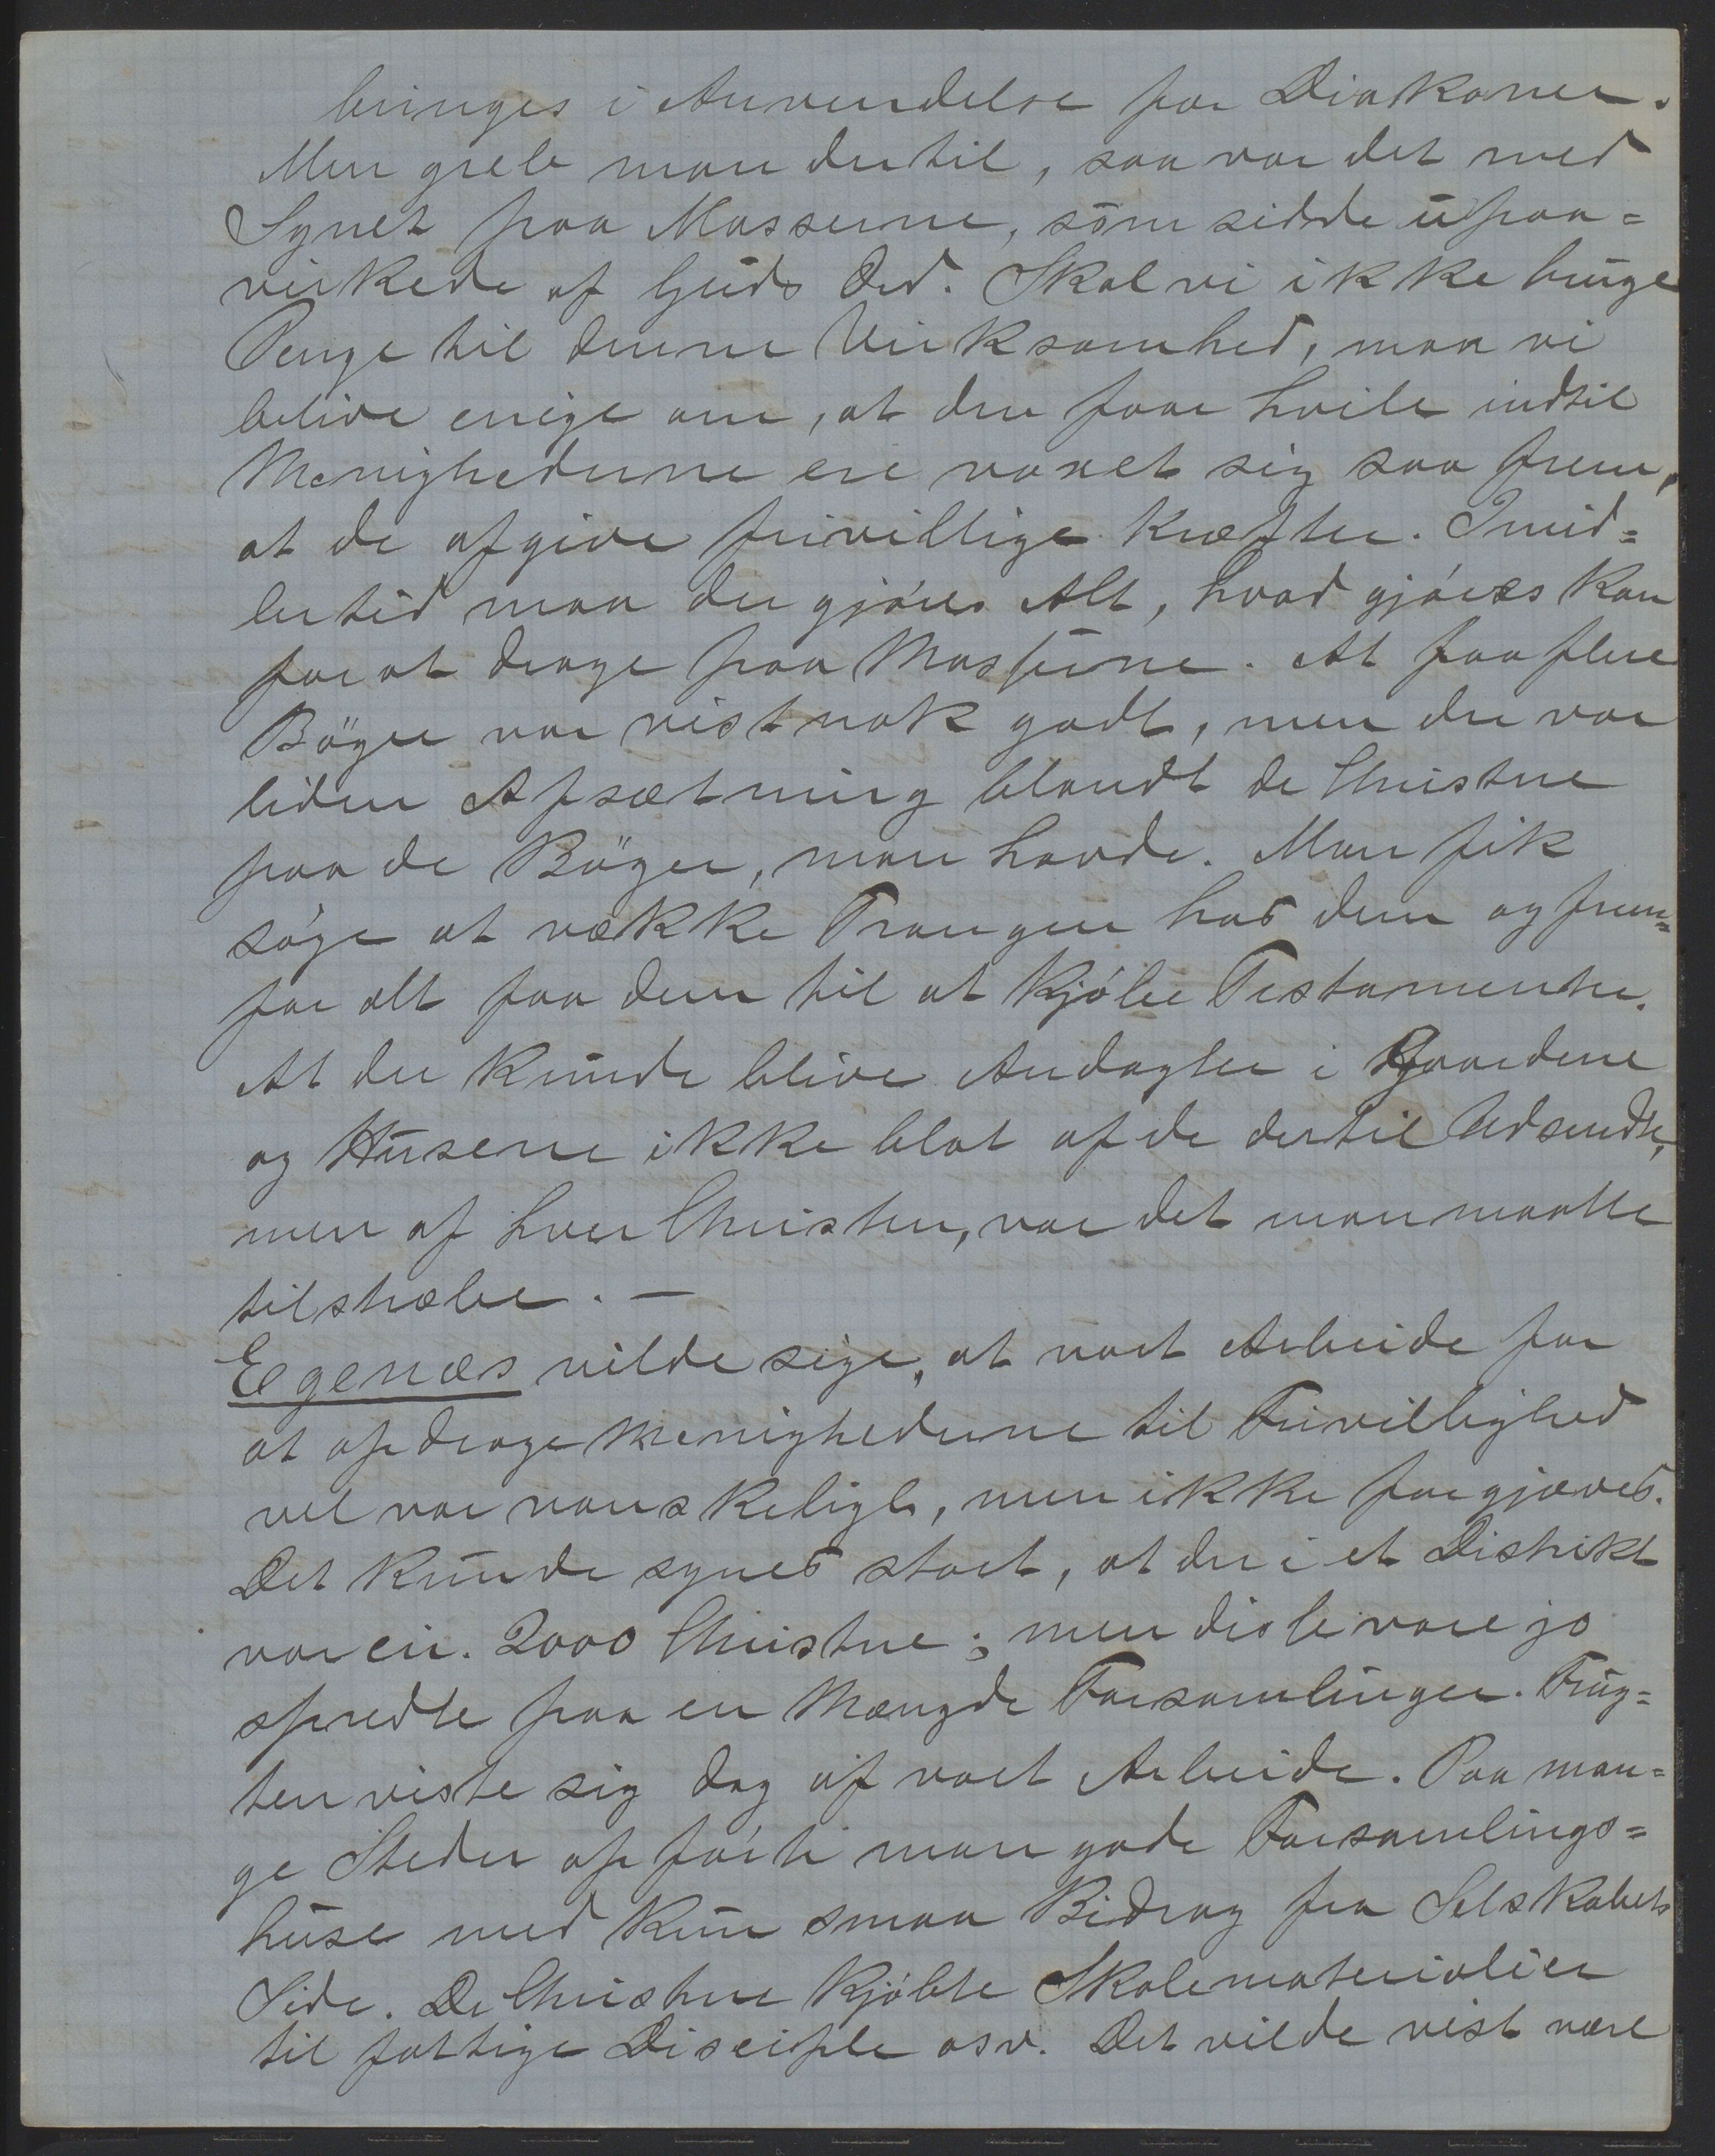 bringes i Anvendelse for Diakoner.
Men greb man dertil, saa var det med
Synet paa Masserne, som sidde upaa=
virkede af Guds Ord. Skal vi ikke bruge
Penge til denne Virksomhed, maa vi
blive enige om, at den faar hvile indtil
Menighederne ere voxet sig saa frem,
at de afgive frivillige Kræfter. Imid=
lertid maa der gjøres Alt, hvad gjøres kan
for at drage paa Masserne. At faa flere
Bøger var vistnok godt, men der var
liden Afsætning blandt de Christne
paa de Bøger, man havde. Man fik
søge at vække Trangen hos dem og frem=
for alt faa dem til at kjøbe Testamenter.
At der kunde blive Andagter i Gaardene
og Husene ikke blot af de dertil Udsendte,
men af hver Christen, var det man maatte
tilstræbe. —
Egenæs vilde sige, at vort Arbeide for
at opdrage Menighederne til Frivillighed
vel var vanskeligt, men ikke forgjæves.
Det kunde synes stort, at der i et Distrikt
var cir. 2000 Christne; men disse vare jo
spredte paa en Mængde Forsamlinger. Frug=
ten viste sig dog af vort Arbeide. Paa man=
ge Steder opførte man gode Forsamlings=
huse med kun smaa Bidrag fra Selskabets
Side. De Christne kjøbte Skolematerialier
til fattige Disciple osv. Det vilde vist være